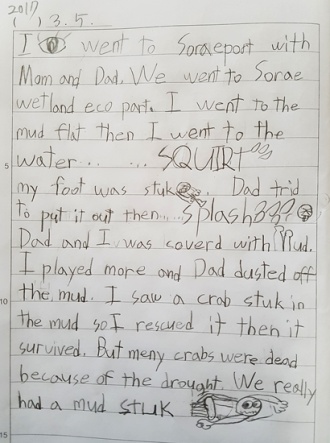 2017
( ) 3.5.
I went to Soraeport with
Mom and Dad. We went to Sorae
wetland eco part. I went to the
mud flat then I went to the
5
water... ... SQUIRT
my foot was stuk Dad trid
to put it out then... splash
Dad and I was coverd with Mud.
I played more and Dad dusted off
10
the mud. I saw a crab stuk in
the mud so I rescued it then it
survived. But meny crabs were dead
because of the drought. We really
had a mud stuk
15